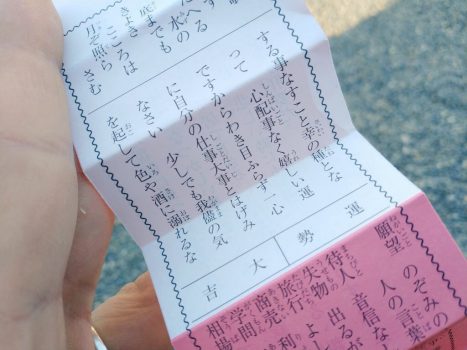 水の
底までも
きよき こころは
月ぞ照らさむ
運勢
大吉
する事なすこと幸の種とな
って 心配事なく嬉しい運
ですからわき目ふらず一心
に自分の仕事大事とはげみ
なさい 少しでも我儘の気
を起して色や酒に溺れるな
願望 のぞみの
人の言葉
待人 音信な
失物 出るが
旅行 よし
商売 利
学問
相場